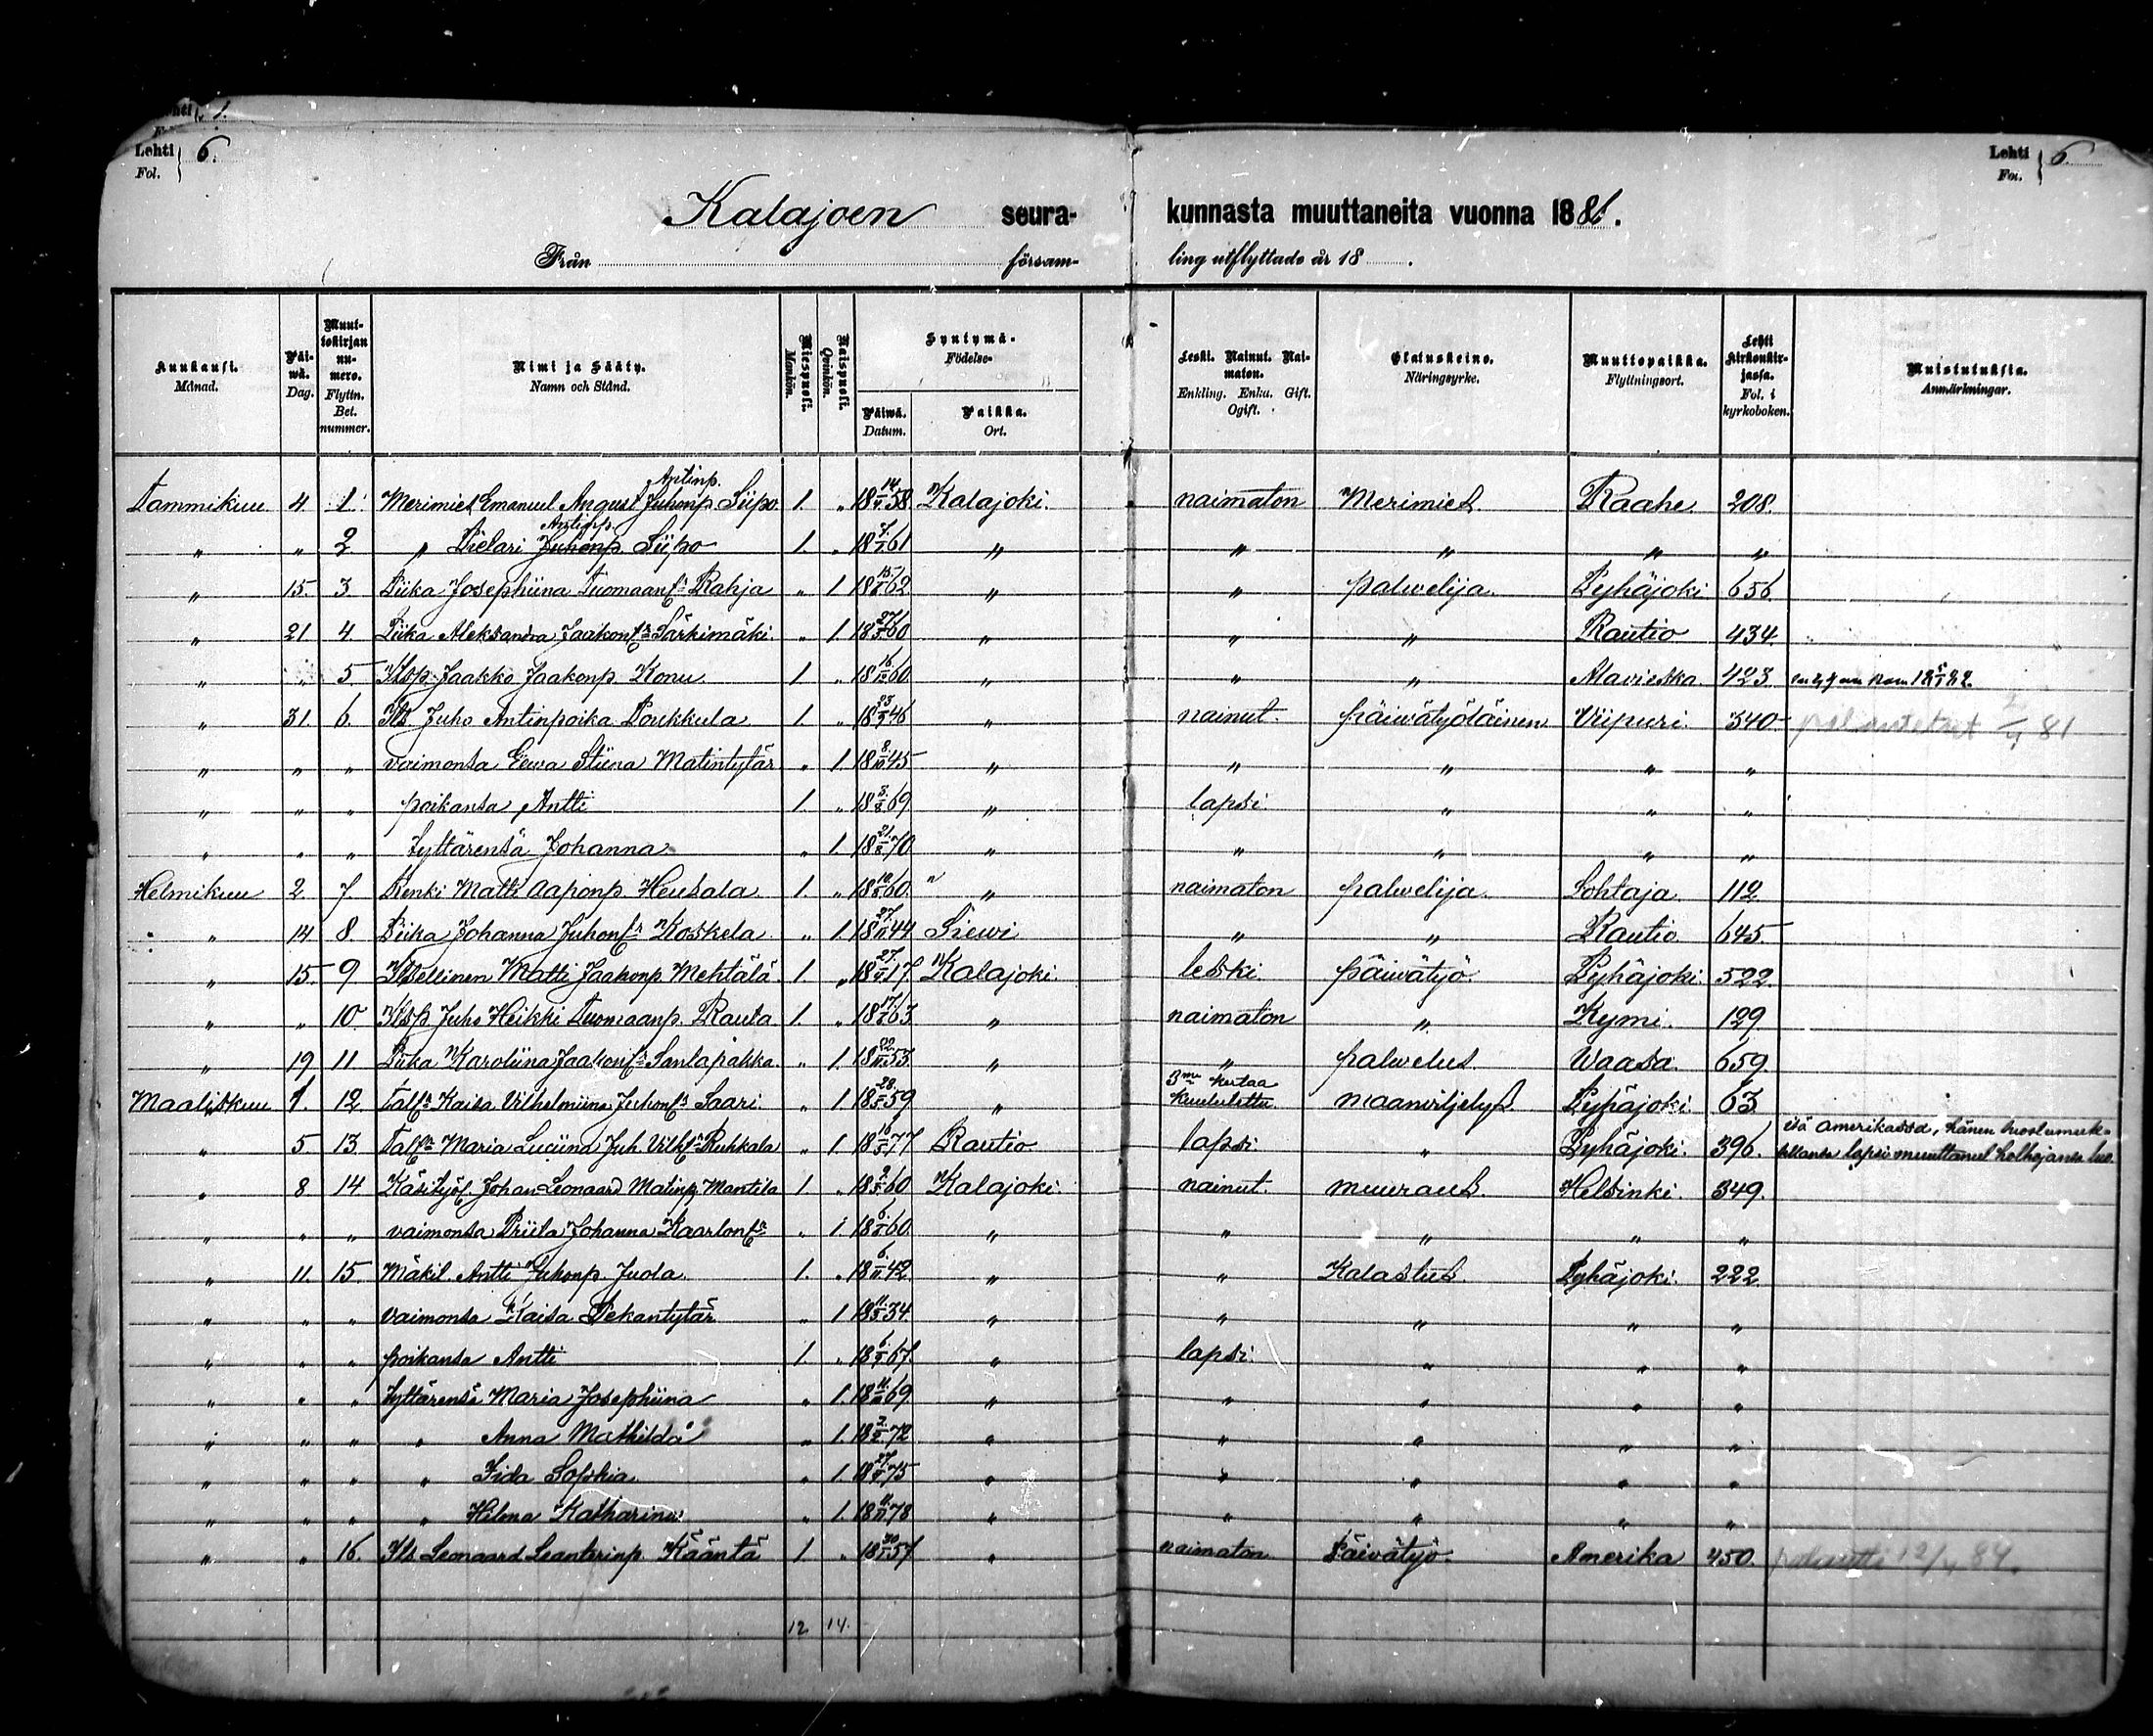 Lehti 6.
Fol.
Lehti 6.
Fol.
Kalajoen seurakunnasta muuttaneita vuonna 1881.
Från församling utflyttade år 18 .
Kuukausi. Månad. | Päiwä. Dag. | Muuttokirjan numero. Flyttn. Bet. nummer. | Nimi ja Sääty. Namn och Stånd. | Miespuoli. Mankön. | Naispuoli. Qvinkön. | Syntymä- Födelse- Päiwä. Datum. | Paikka. Ort. | Leski. Nainut. Naimaton. Enkling. Enka. Gift. Ogift. | Elatuskeino. Näringsyrke. | Muuttopaikka. Flyttningsort. | Lehti kirkonkirjassa. Fol. i kyrkoboken. | Muistutuksia. Anmärkningar.
Antinp.
Tammikuu 4 1. Merimies Emanuel August Juhonp. Siipo 1. „ 18 14/ 58. Kalajoki. naimaton Merimies Raahe. 208.
Antinp.
„ „ 2 „ Pietari Juhonp. Siipo 1. „ 18 7/ 61 „ „ „ „ „
„ 15. 3. Piika Josephiina Tuomaant. Rahja „ 1. 18 15/ 62 „ „ palwelija. Pyhäjoki 656.
„ 21 4. Piika Aleksandra Jaakont. Särkimäki. „ 1. 18 27/ 60 „ „ „ Rautio 434.
„ „ 5 Itsp. Jaakko Jaakonp. Konu 1. „ 18 16/ 60 „ „ „ Alavieska. 423.
„ 31. 6. Its Juho Antinpoika Poukkula 1. „ 18 23/ 46 „ nainut. päiwätyöläinen Viipuri. 340. 81
„ „ „ vaimonsa Eewa Stiina Matintytär „ 1. 18 8/ 45 „ „ „ „ „
„ „ „ poikansa Antti 1. „ 18 3/ 69 „ lapsi „ „ „
„ „ „ tyttärensä Johanna. „ 1. 18 21/ 70 „ „ „ „ „
Helmikuu 2. 7. Renki Matti Aaponp. Heusala. 1. „ 18 10/ 60. „ naimaton palwelija. Lohtaja 112
„ 14 8. Piika Johanna Juhont. Koskela. „ 1. 18 27/ 44 Siewi „ „ Rautio. 645.
„ 15. 9 Itsellinen Matti Jaakonp. Mehtälä. 1. „ 18 27/ 17. Kalajoki. leski. päiwätyö. Pyhäjoki. 522.
„ „ 10. Itsp. Juho Heikki Tuomaanp. Rauta. 1. „ 18 17/ 63 „ naimaton „ Kymi. 129
„ 19 11 Piika Karoliina Jaakont. Santapakka. „ 1. 18 22/ 53 „ „ palwelus Waasa. 659.
Maaliskuu 1. 12. Kaisa Vilhelmiina Juhont. Saari. „ 1 18 28/ 59 „ 3me kertaa kuulutettu. maanviljelys. Pyhäjoki 63.
„ 5 13. Maria Luciina Juh. Vilh. Ruhkala „ 1. 18 10/ 77 Rautio. lapsi „ Pyhäjoki. 396. isä Amerikassa, hänen
lapsi muuttanut holhojansa luo.
„ 8. 14 Käsityöl. Johan Leonaard Matinp. Mantila 1. „ 18 2/ 60 Kalajoki. nainut. muuraus. Helsinki. 349.
„ „ „ vaimonsa Priita Johanna Kaarlont. „ 1. 18 6/ 60. „ „ „ „ „
„ 11. 15. Mäkil. Antti Juhonp. Juola. 1. „ 18 6/ 42. „ „ Kalastus. Pyhäjoki. 222.
„ „ „ vaimonsa Kaisa Pekantytär „ 1 18 11/ 34. „ „ „ „ „
„ „ „ poikansa Antti 1. „ 18 6/ 67. „ lapsi. „ „ „
„ „ „ tyttärensä Maria Josephiina „ 1. 18 11/ 69. „ „ „ „ „
„ „ „ „ Anna Mathilda „ 1. 18 2/ 72 „ „ „ „ „
„ „ „ „ Iida Sophia. „ 1. 18 27/ 75 „ „ „ „ „
„ „ „ „ Hilma Katharina „ 1. 18 11/ 78 „ „ „ „ „
„ „ 16. Its Leonaard Leanterinp. Kääntä 1. „ 18 30/ 57. „ naimaton Päivätyö. Amerika 450. palautti 12/ 84.
12 14.